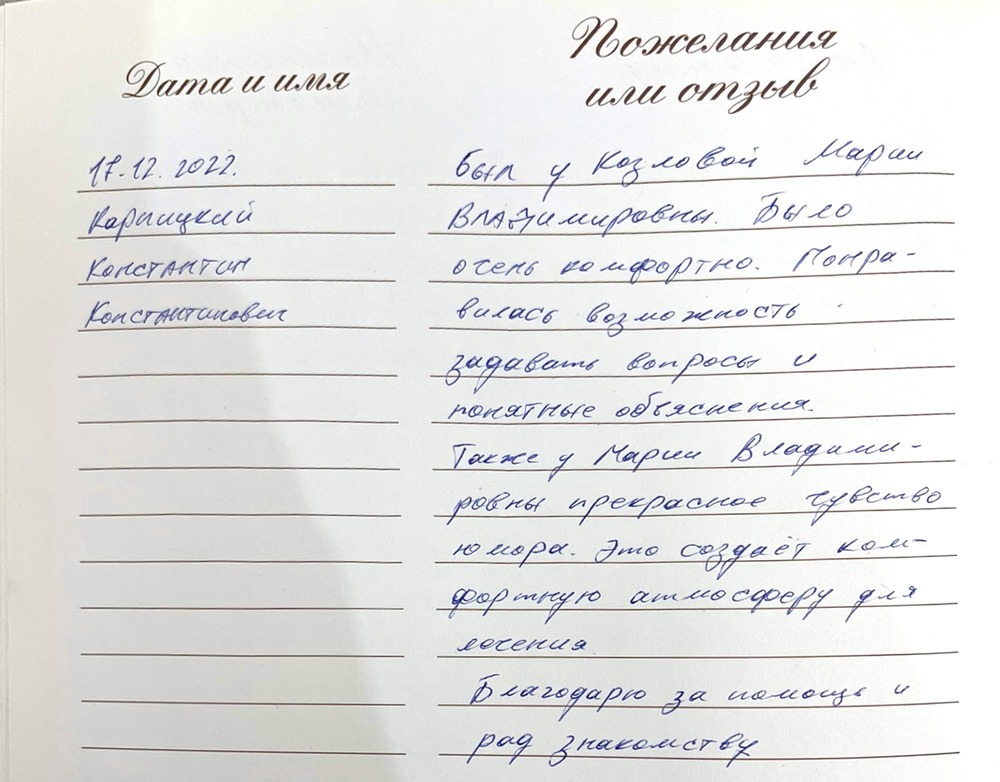 Дата и имя
Пожелания
или отзыв
17.12.2022.
Карпицкий
Константин
Константинович
Был у Козловой Марии
Владимировны. Было
очень комфортно. Понра-
вилась возможность
задавать вопросы и
понятные объяснения.
Также у Марии Владими-
ровны прекрасное чувство
юмора. Это создаёт ком-
фортную атмосферу для
лечения
Благодарю за помощь и
рад знакомству